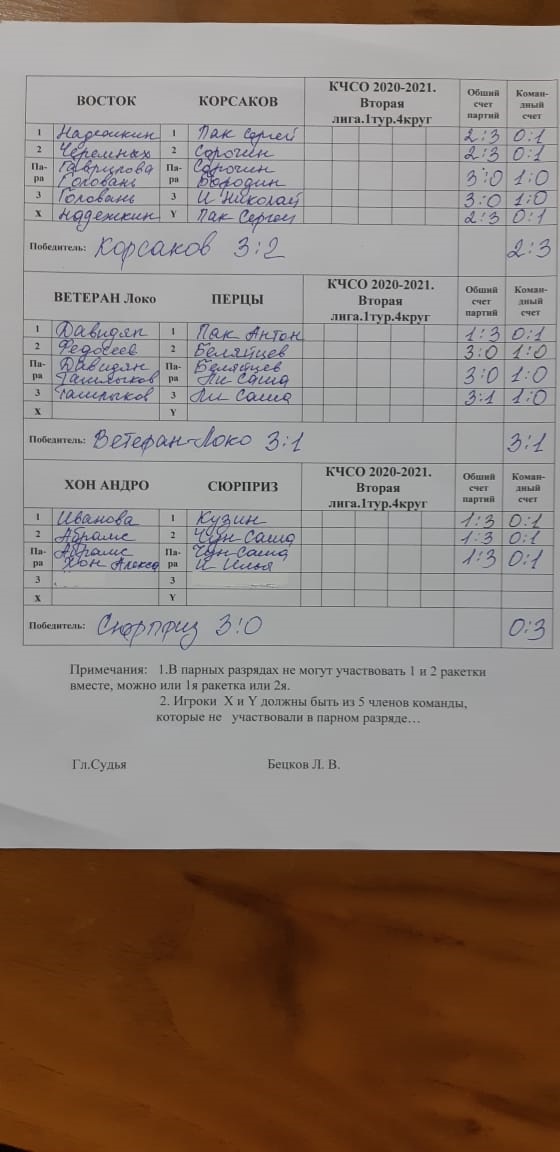 ВОСТОК КОРСАКОВ КЧСО 2020-2021. Вторая лига.1тур.4круг Общий счет партий Коман-дный счет
1 Надежкин 1 Пак Сергей 2:3 0:1
2 Черемных 2 Сорочин 2:3 0:1
Па-ра Гаврилова Головань Па-ра Сорочин Бородин 3:0 1:0
3 Головань 3 И Николай 3:0 1:0
X Надежкин Y Пак Сергей 2:3 0:1
Победитель: Корсаков 3:2 2:3
ВЕТЕРАН Локо ПЕРЦЫ КЧСО 2020-2021. Вторая лига.1тур.4круг Общий счет партий Коман-дный счет
1 Давидян 1 Пак Антон 1:3 0:1
2 Федосеев 2 Беляйцев 3:0 1:0
Па-ра Давидян Ташлыков Па-ра Беляйцев Ли Саша 3:0 1:0
3 Ташлыков 3 Ли Саша 3:1 1:0
X Y
Победитель: Ветеран-Локо 3:1 3:1
ХОН АНДРО СЮРПРИЗ КЧСО 2020-2021. Вторая лига.1тур.4круг Общий счет партий Коман-дный счет
1 Иванова 1 Кузин 1:3 0:1
2 Абрамс 2 Чун Саша 1:3 0:1
Па-ра Абрамс Хон Алекса Па-ра Чун Саша И Илья 1:3 0:1
3 3
X Y
Победитель: Сюрприз 3:0 0:3
Примечания: 1.В парных разрядах не могут участвовать 1 и 2 ракетки
вместе, можно или 1я ракетка или 2я.
2. Игроки X и Y должны быть из 5 членов команды,
которые не участвовали в парном разряде…
Гл.Судья Бецков Л. В.